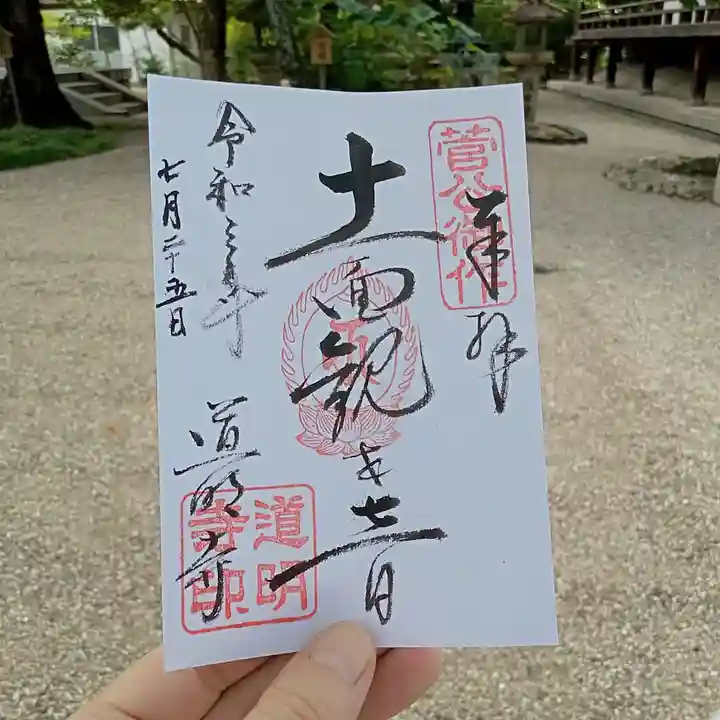 奉拝
菅公御作
十一面観世音
令和三年
七月二十五日
道明寺
道明
寺印